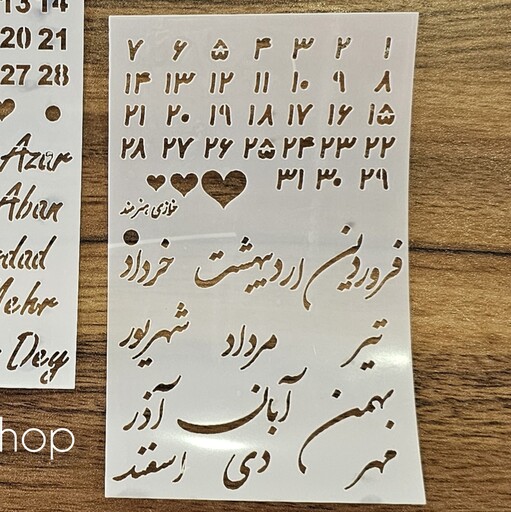 13 14
20 21
27 28
Azar
Aban
dad
Mehr
Dey
hop
۱ ۲ ۳ ۴ ۵ ۶ ۷
۸ ۹ ۱۰ ۱۱ ۱۲ ۱۳ ۱۴
۱۵ ۱۶ ۱۷ ۱۸ ۱۹ ۲۰ ۲۱
۲۲ ۲۳ ۲۴ ۲۵ ۲۶ ۲۷ ۲۸
۲۹ ۳۰ ۳۱
خازی هنرمند
فروردین اردیبهشت خرداد
تیر مرداد شهریور
بهمن آبان آذر
مهر دی اسفند